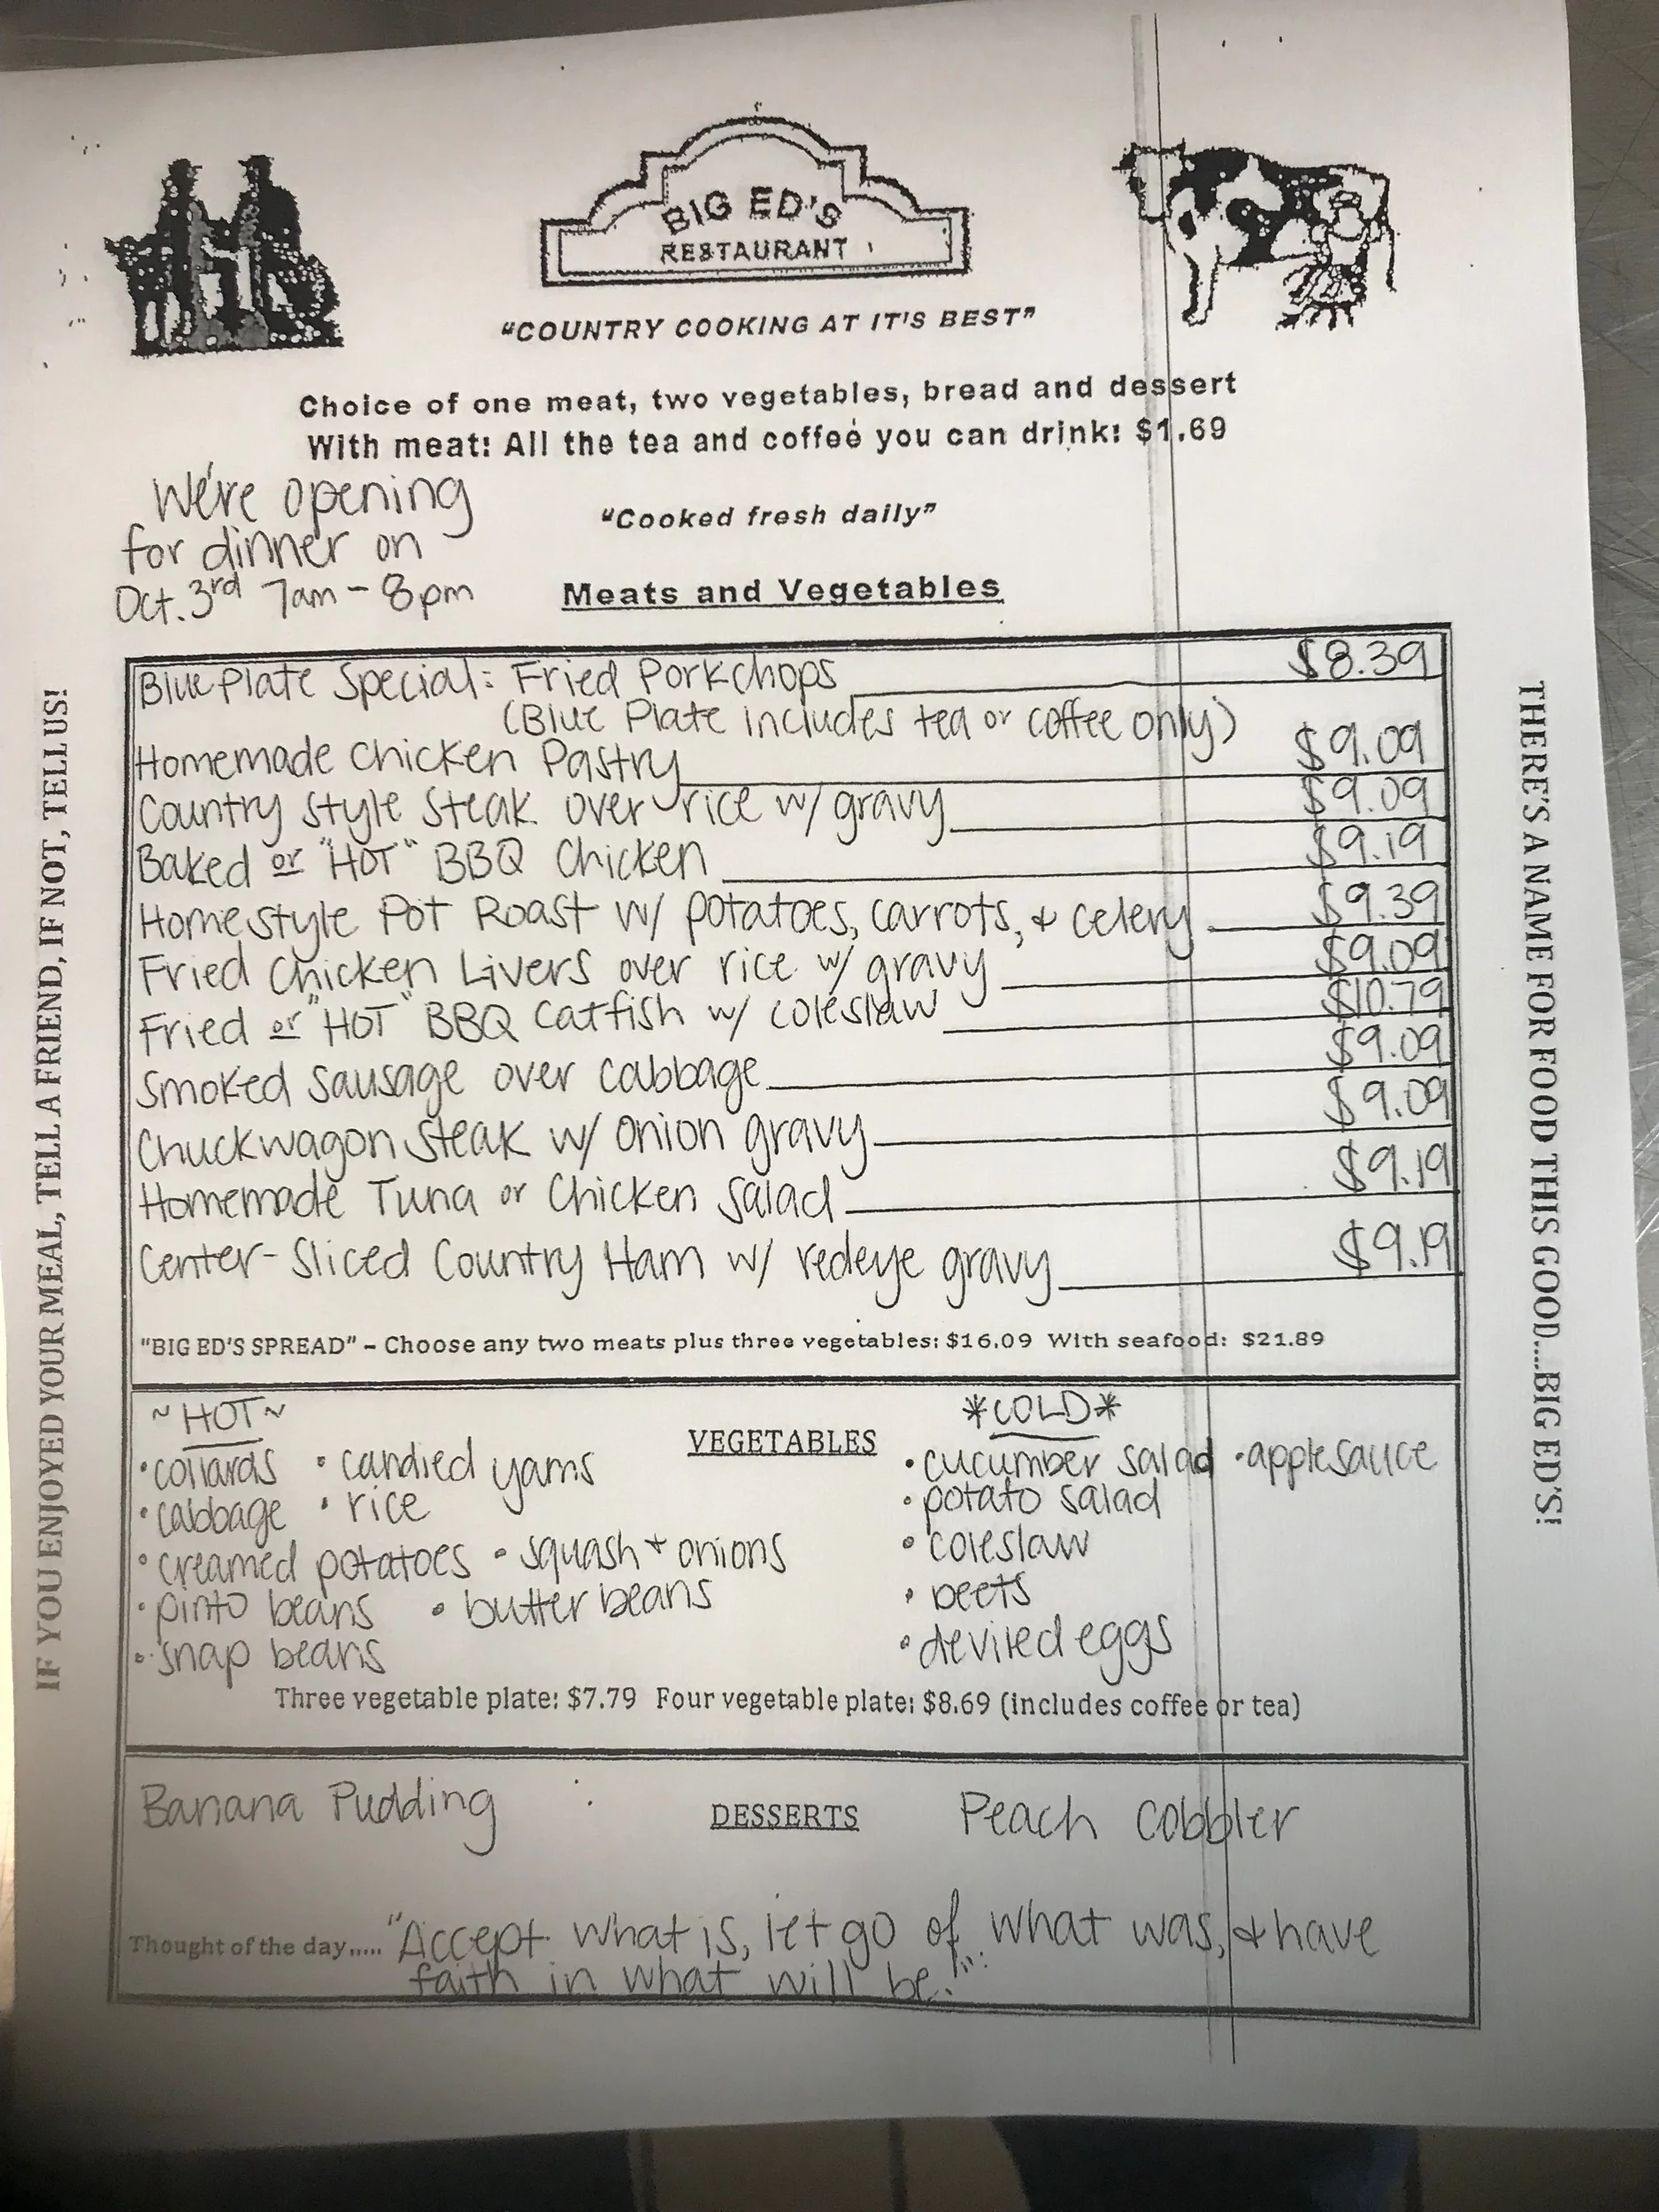 BIG ED'S
RESTAURANT
"COUNTRY COOKING AT IT'S BEST"
Choice of one meat, two vegetables, bread and dessert
With meat: All the tea and coffee you can drink: $1.69
We're opening
for dinner on
Oct. 3rd 7am - 8pm
"Cooked fresh daily"
Meats and Vegetables
Blue Plate Special: Fried Porkchops $8.39
(Blue Plate includes tea or coffee only)
Homemade Chicken Pastry $9.09
Country Style Steak over rice w/ gravy $9.09
Baked or "HOT" BBQ Chicken $9.19
Homestyle Pot Roast w/ potatoes, carrots, & celery $9.39
Fried Chicken Livers over rice w/ gravy $9.09
Fried or "HOT" BBQ Catfish w/ coleslaw $10.79
Smoked Sausage over cabbage $9.09
Chuckwagon Steak w/ onion gravy $9.09
Homemade Tuna or Chicken Salad $9.19
Center-Sliced Country Ham w/ redeye gravy $9.19
"BIG ED'S SPREAD" – Choose any two meats plus three vegetables: $16.09 With seafood: $21.89
VEGETABLES
~HOT~
• collards • candied yams
• cabbage • rice
• creamed potatoes • squash + onions
• pinto beans • butter beans
• snap beans
*COLD*
• cucumber salad • applesauce
• potato salad
• coleslaw
• beets
• deviled eggs
Three vegetable plate: $7.79 Four vegetable plate: $8.69 (includes coffee or tea)
Banana Pudding DESSERTS Peach Cobbler
Thought of the day..... "Accept what is, let go of what was, & have
faith in what will be."
IF YOU ENJOYED YOUR MEAL, TELL A FRIEND, IF NOT, TELL US!
THERE'S A NAME FOR FOOD THIS GOOD....BIG ED'S!